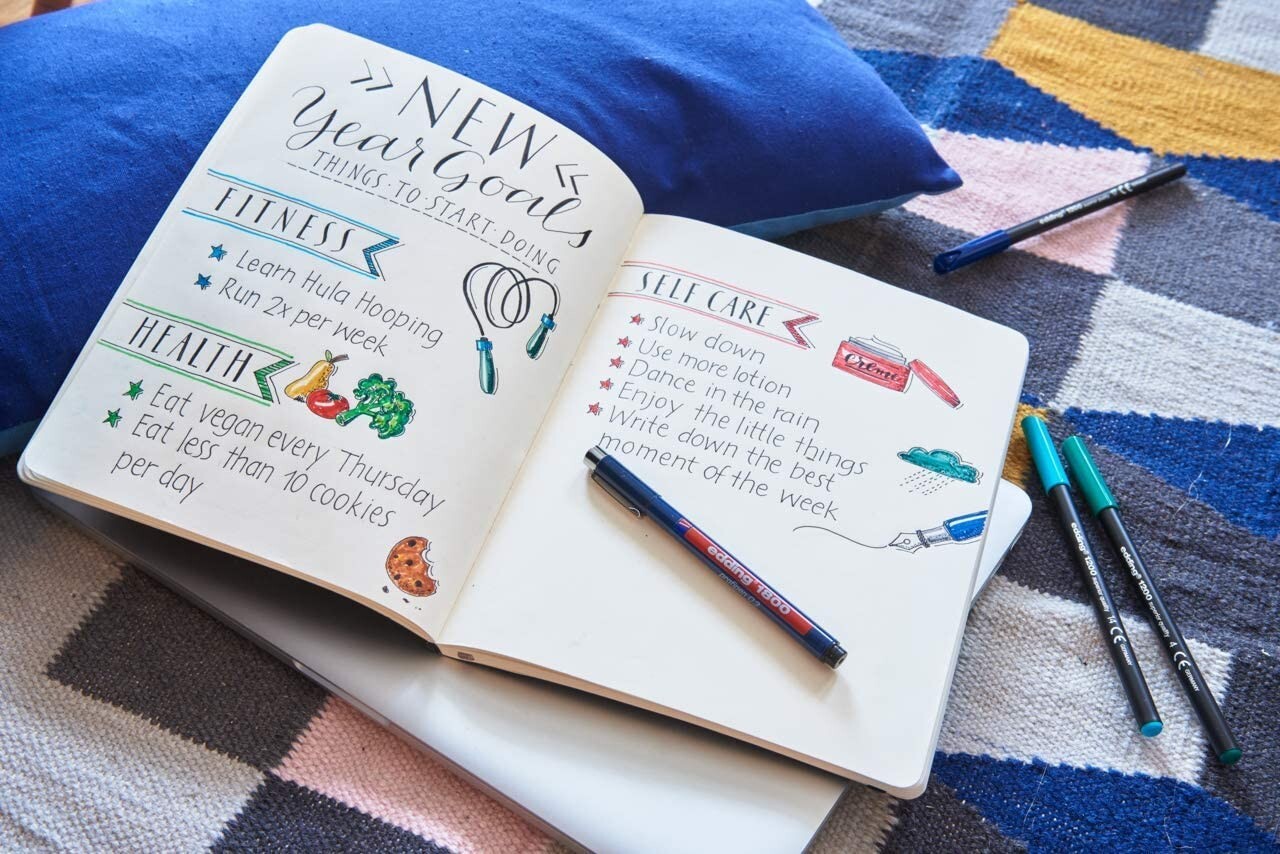 >> NEW <<
Year Goals
THINGS·TO·START·DOING
FITNESS
Learn Hula Hooping
Run 2x per week
HEALTH
Eat vegan every Thursday
Eat less than 10 cookies
per day
SELF CARE
Slow down
Use more lotion
Dance in the rain
Enjoy the little things
Write down the best
moment of the week
Creme
edding 1800
profipen 0.3
edding
CE
edding® 1200 superior quality 14 CE GERMANY
edding® 1200 superior quality 4 CE GERMANY